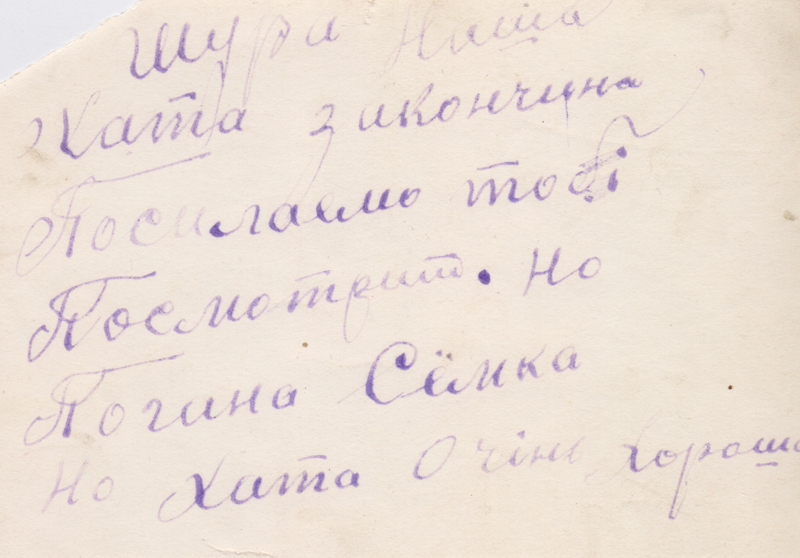 Шура Наша
Хата закончина
Посилаемо тобі
Посмотрит. но
Погина Сёмка
но Хата Очінь хороша